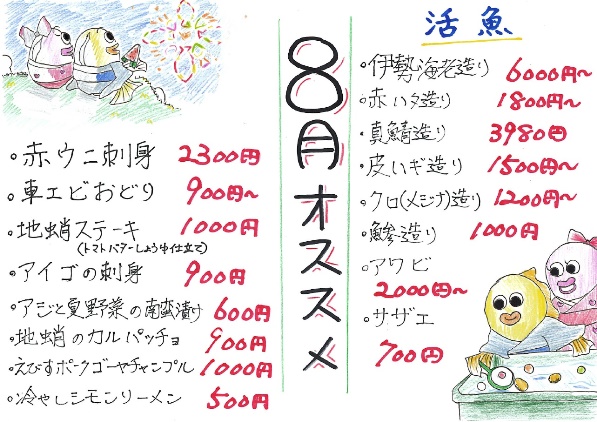 活魚
・伊勢海老造り 6000円〜
・赤ハタ造り 1800円〜
・真鯖造り 3980円
・皮ハギ造り 1500円〜
・クロ(メジナ)造り 1200円〜
・鯵造り 1000円
・アワビ
2000円〜
・サザエ
700円
8月オススメ
・赤ウニ刺身 2300円
・車エビおどり 900円〜
・地蛸ステーキ 1000円
(トマトバターしょうゆ仕立て)
・アイゴの刺身 900円
・アジと夏野菜の南蛮漬け 600円
・地蛸のカルパッチョ 900円
・えびすポークゴーヤチャンプル 1000円
・冷やしシモンリーメン 500円